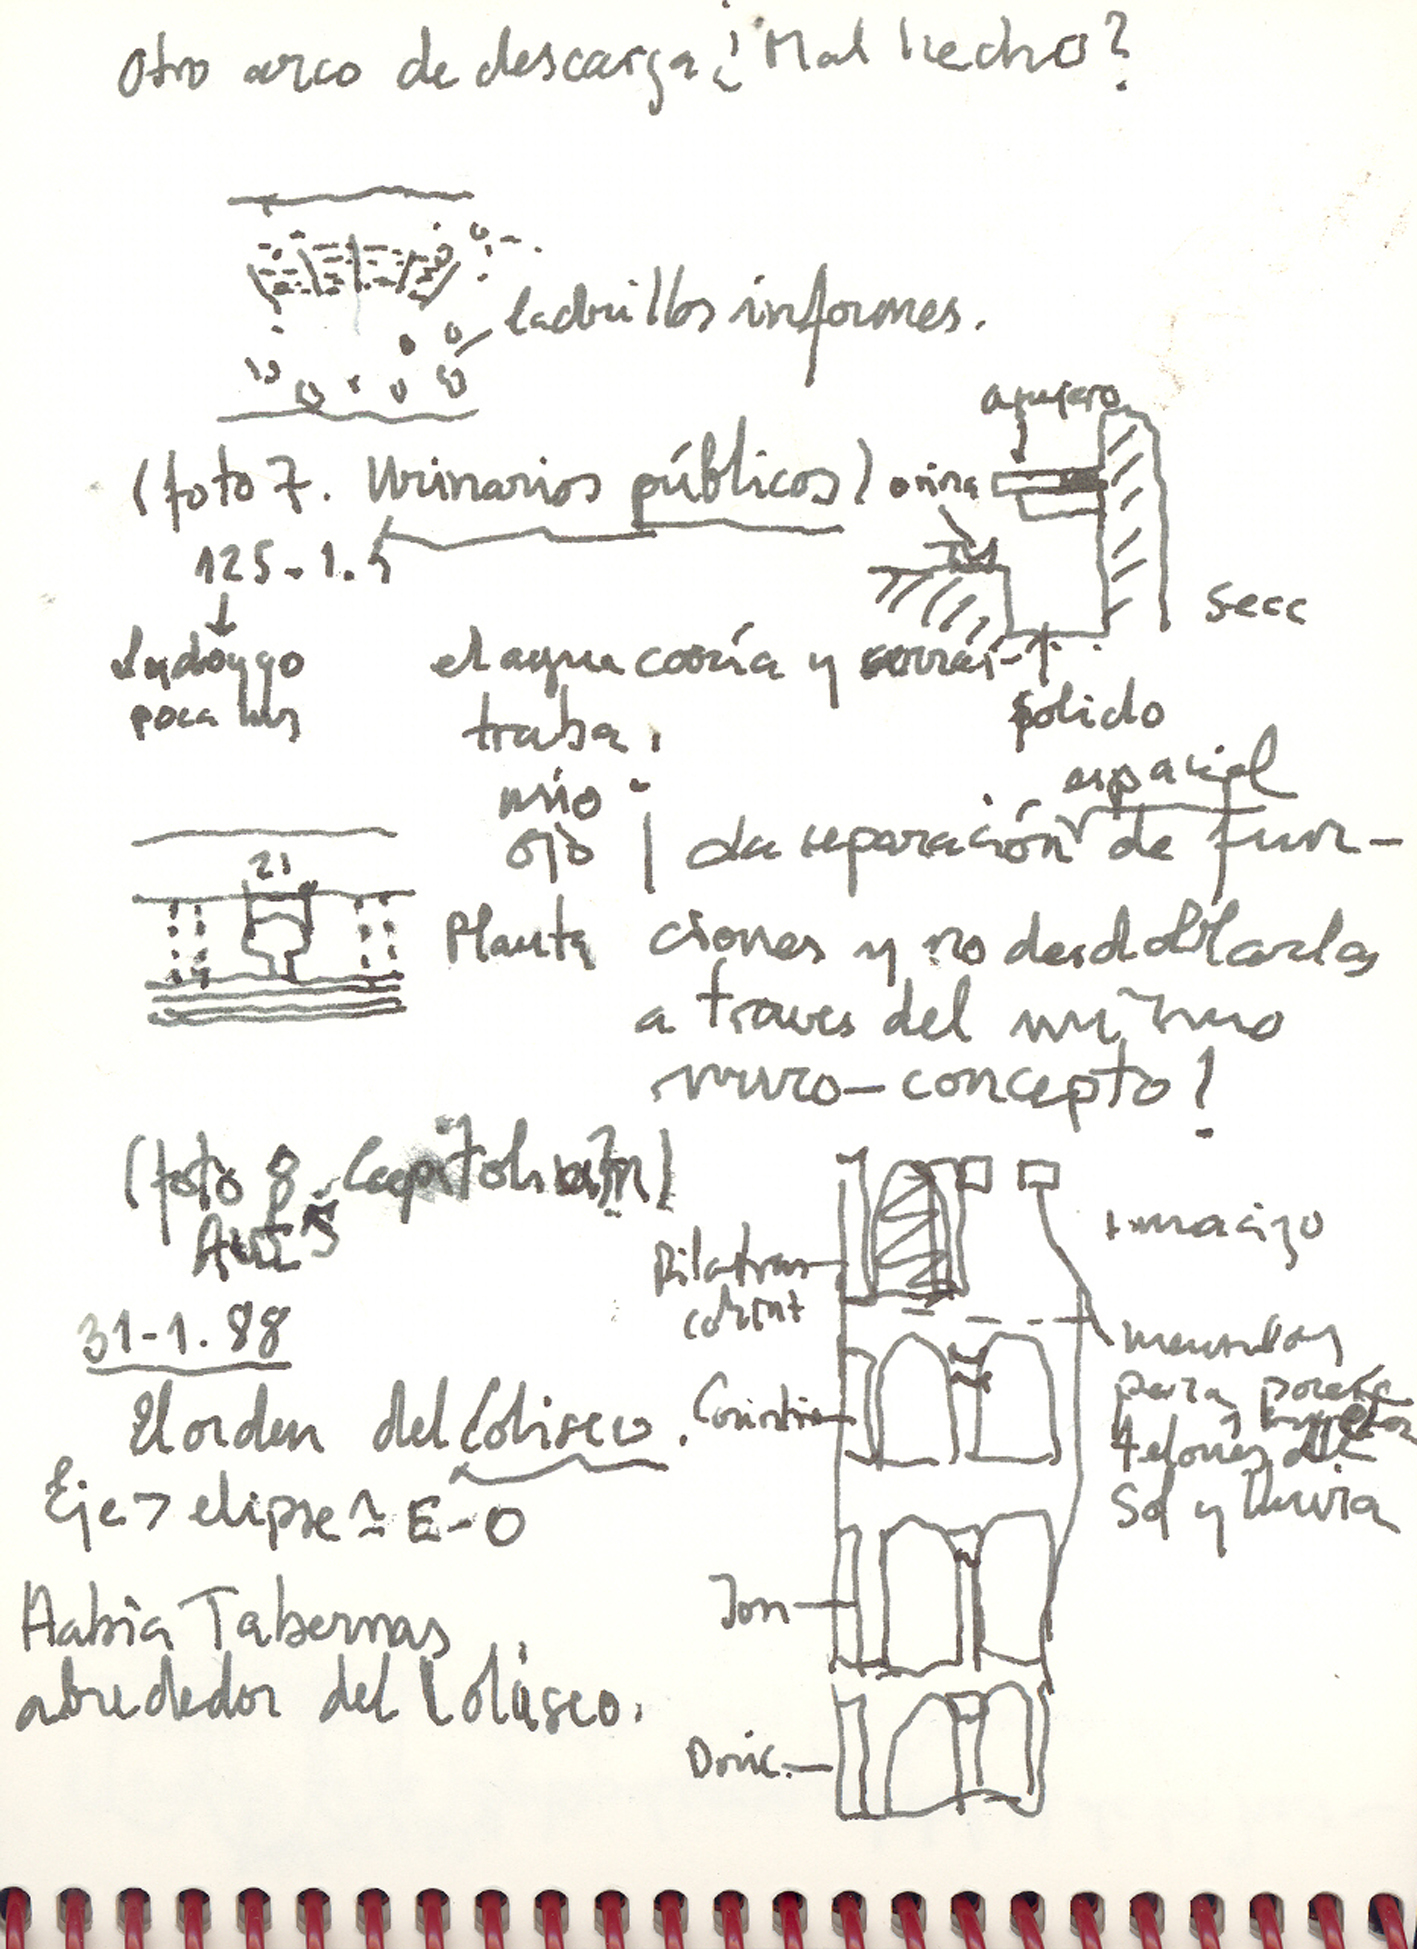 Otro arco de descarga ¿Mal hecho?
ladrillos informes.
agujero
(foto 7. Urinarios públicos)
orina
125-1.5
Secc
poca luz
el agua corría y
polido
traba.
mio
ojo
espacial
La separación de fun-
ciones y no desdoblarlas
a traves del mismo
muro-concepto!
21
Planta
(foto 8. Capitolium)
+macizo
Pilatras
corint
31-1.88
mensulas
para
telones de
Sol y lluvia
El orden del Coliseo.
Corintio
Eje > elipse ≃ E-O
Jon
Había Tabernas
alrededor del Coliseo.
Doric.